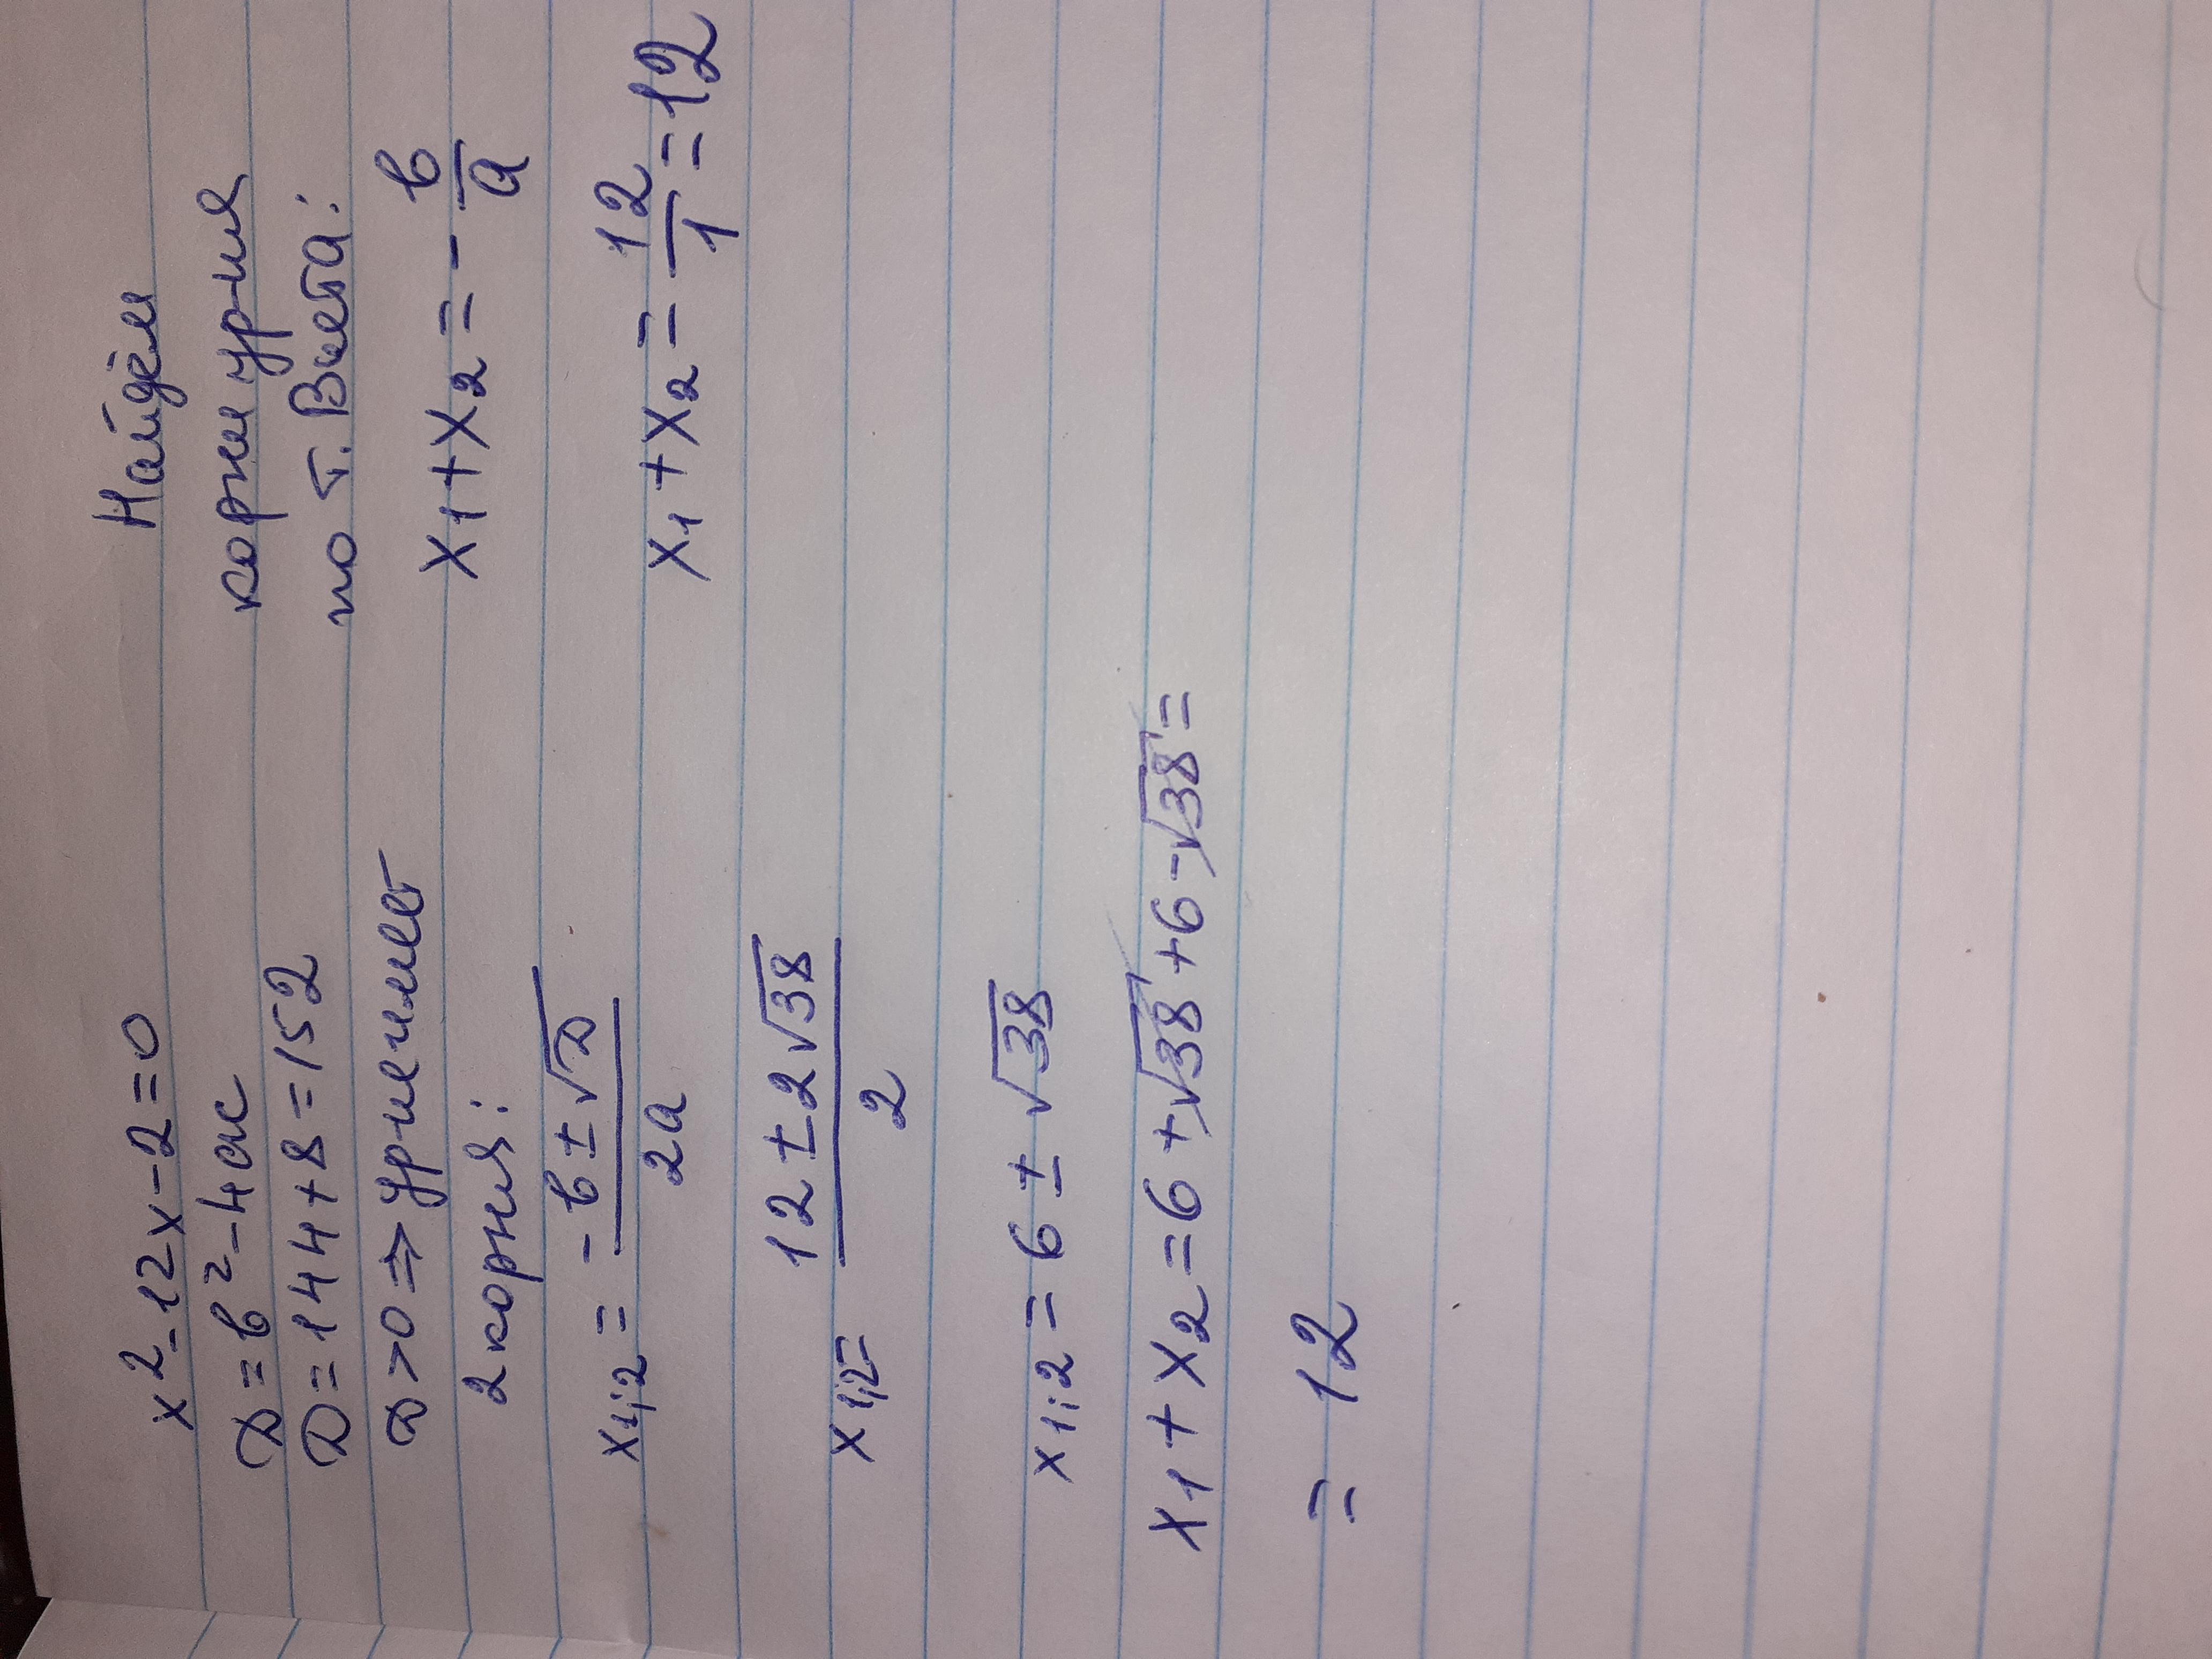 x² - 12x - 2 = 0
D = b² - 4ac
D = 144 + 8 = 152
D > 0 => ур-ние имеет
2 корня:
x₁,₂ = (-b ± √D) / 2a
x₁,₂ = (12 ± 2√38) / 2
x₁;₂ = 6 ± √38
x₁ + x₂ = 6 + √38 + 6 - √38 =
= 12
Найдём
корни ур-ния
по т. Виета:
x₁ + x₂ = - b/a
x₁ + x₂ = 12/1 = 12